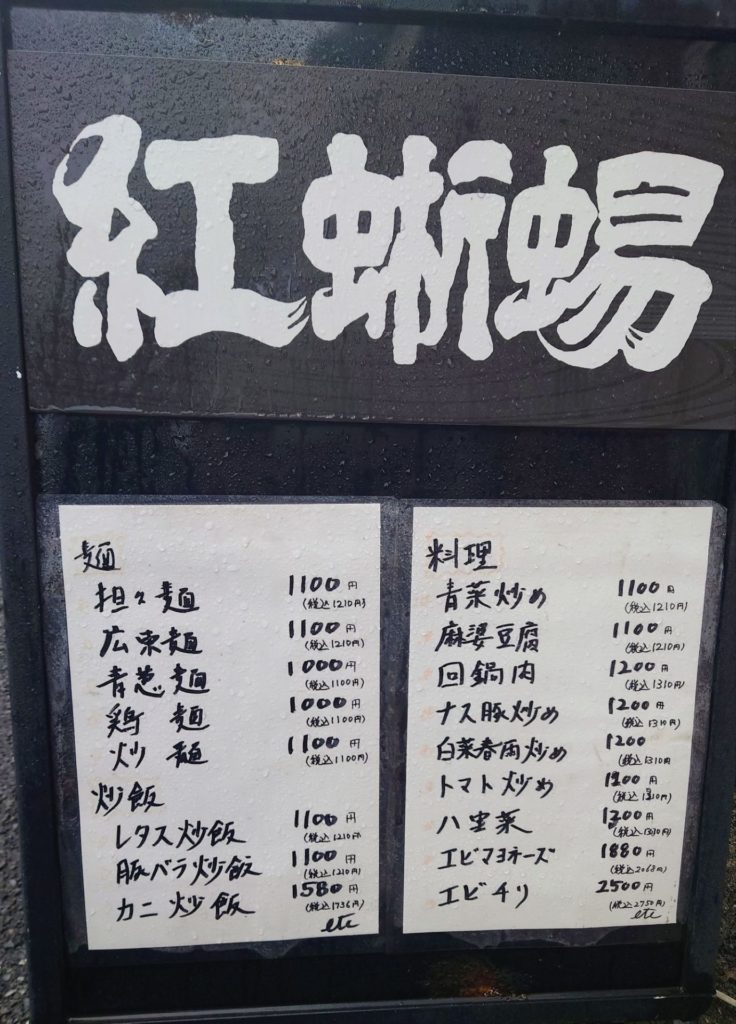 紅蜥蜴
麺
担々麺 1100円
(税込1210円)
広東麺 1100円
(税込1210円)
青葱麺 1000円
(税込1100円)
鶏麺 1000円
(税込1100円)
炒麺 1100円
(税込1100円)
炒飯
レタス炒飯 1100円
(税込1210円)
豚バラ炒飯 1100円
(税込1210円)
カニ炒飯 1580円
(税込1736円)
etc
料理
青菜炒め 1100円
(税込1210円)
麻婆豆腐 1100円
(税込1210円)
回鍋肉 1200円
(税込1310円)
ナス豚炒め 1200円
(税込1310円)
白菜春雨炒め 1200
(税込1310円
トマト炒め 1200円
(税込1310円)
八宝菜
エビマヨネーズ 1880円
(税込2068円)
エビチリ 2500円
(税込2750円)
etc